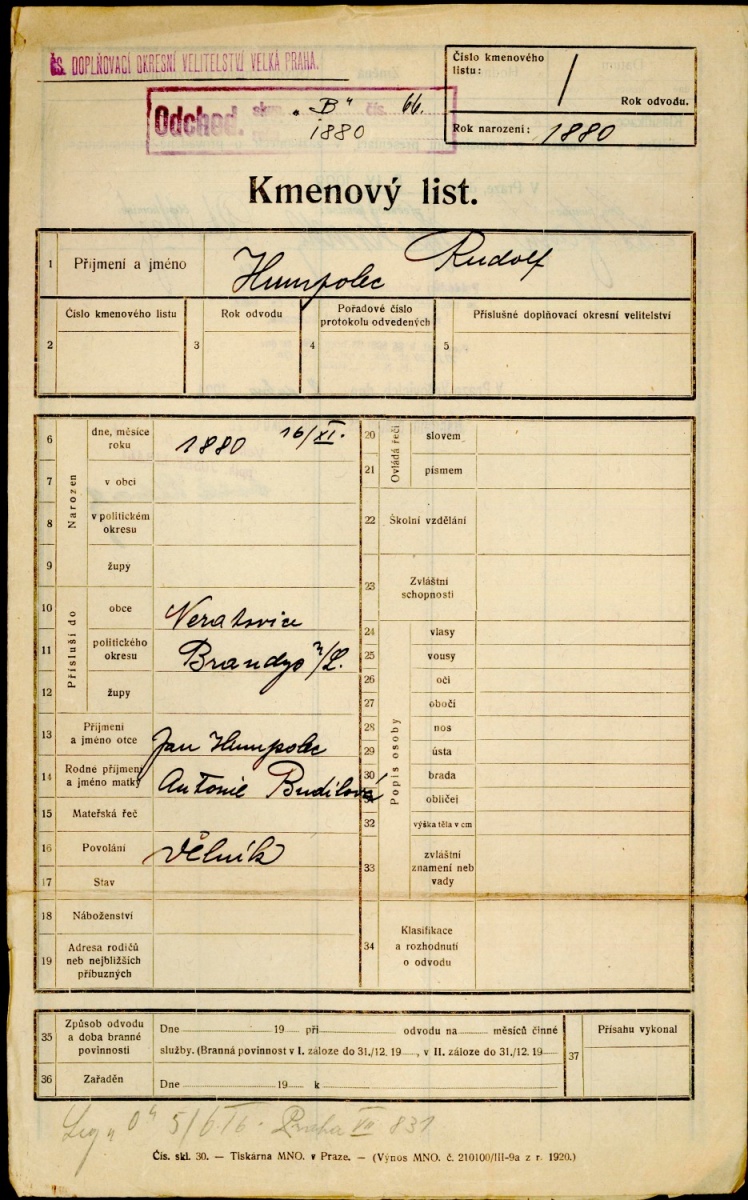 ČS. DOPLŇOVACÍ OKRESNÍ VELITELSTVÍ VELKÁ PRAHA.
Odchod. skup. „B“ čís. 66.
1880
Číslo kmenového
listu: /
Rok odvodu.
Rok narození: 1880
Kmenový list.
1 Příjmení a jméno Humpolec Rudolf
2 Číslo kmenového listu
3 Rok odvodu
4 Pořadové číslo
protokolu odvedených
5 Příslušné doplňovací okresní velitelství
Narozen
6 dne, měsíce
roku 1880 16/XI.
7 v obci
8 v politickém
okresu
9 župy
Přísluší do
10 obce Neratovice
11 politického
okresu Brandýs n/L.
12 župy
13 Příjmení
a jméno otce Jan Humpolec
14 Rodné příjmení
a jméno matky Antonie Budilová
15 Mateřská řeč
16 Povolání dělník
17 Stav
18 Náboženství
19 Adresa rodičů
neb nejbližších
příbuzných
Ovládá řeči
20 slovem
21 písmem
22 Školní vzdělání
23 Zvláštní
schopnosti
Popis osoby
24 vlasy
25 vousy
26 oči
27 obočí
28 nos
29 ústa
30 brada
31 obličej
32 výška těla v cm
33 zvláštní
znamení neb
vady
34 Klasifikace
a rozhodnutí
o odvodu
35 Způsob odvodu
a doba branné
povinnosti
Dne 19 při odvodu na měsíců činné
služby. (Branná povinnost v I. záloze do 31./12. 19 , v II. záloze do 31./12. 19
36 Zařaděn Dne 19 k
37 Přísahu vykonal
Leg „O“ 5/6 16. Praha VII 831
Čís. skl. 30. — Tiskárna MNO. v Praze. — (Výnos MNO. č. 210100/III-9a z r. 1920.)